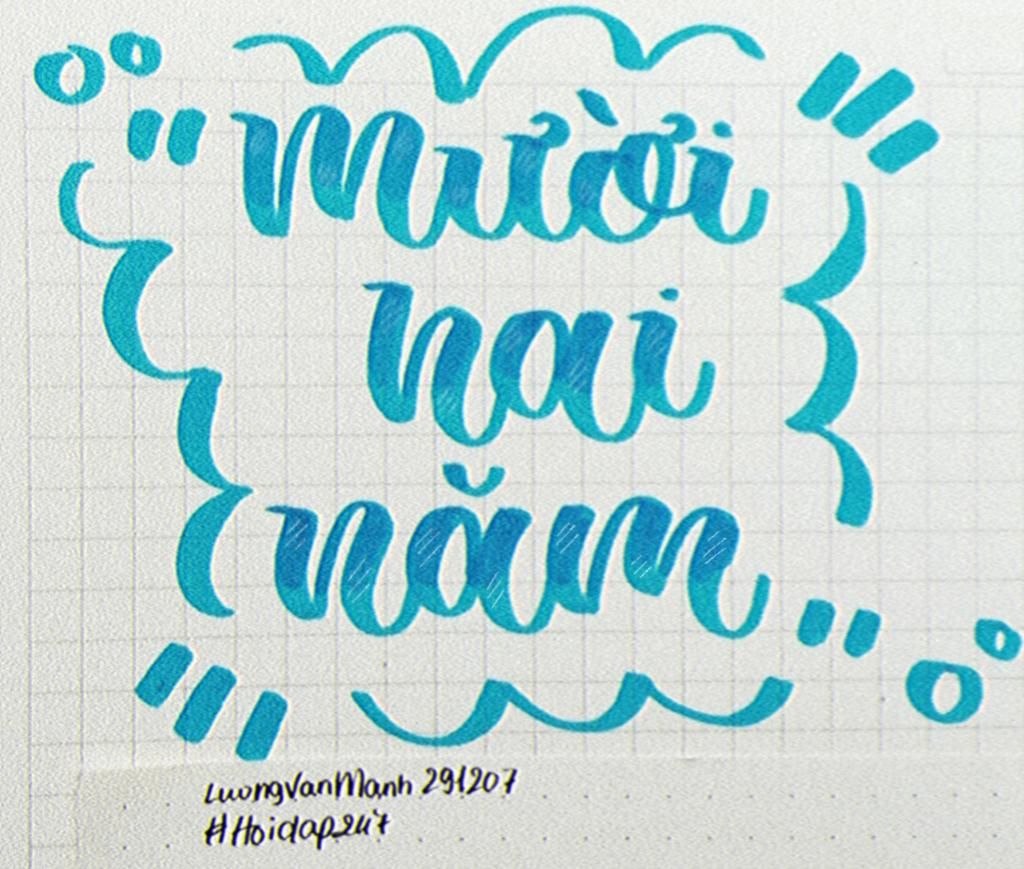 "Mười
hai
năm"
LuongVanManh 291207
#Hoidap247